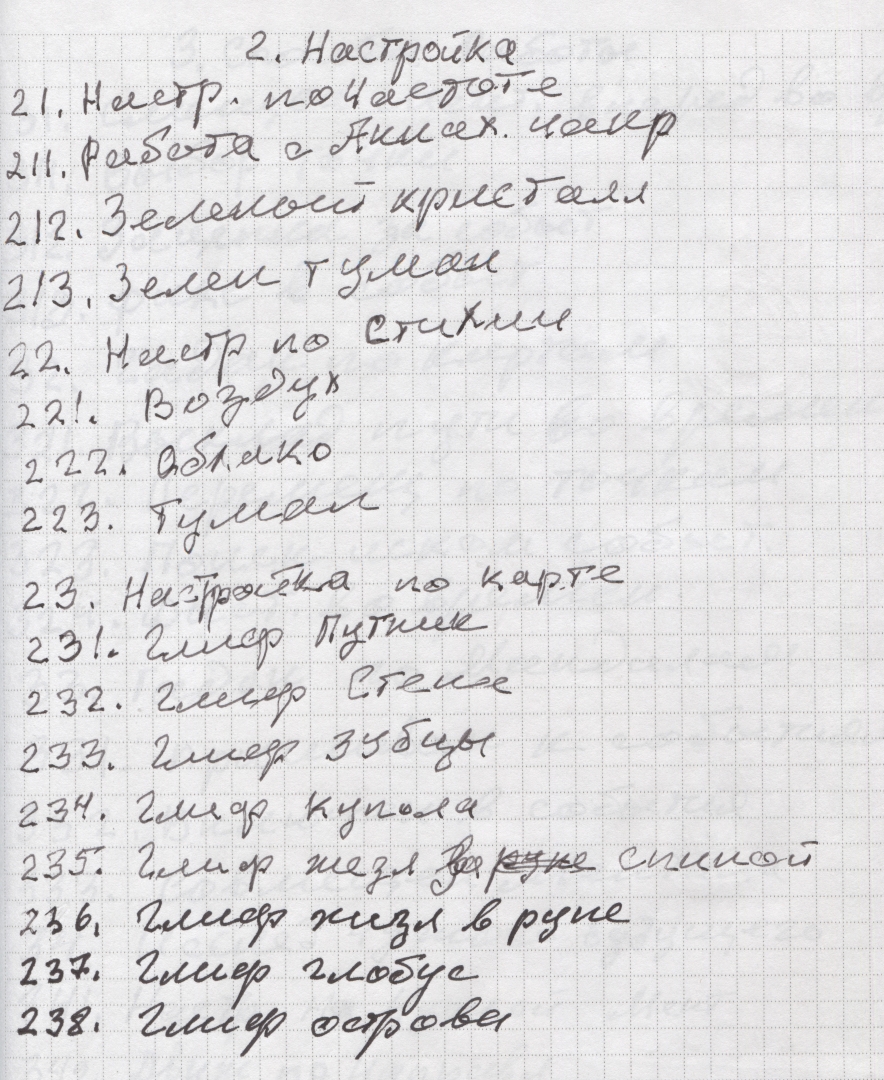 2. Настройка
21. Настр. по частоте
211. Работа с Аннах. чакр
212. Зеленый кристалл
213. Зелен туман
22. Настр по стихии
221. Воздух
222. Облако
223. Туман
23. Настройка по карте
231. Глиф Путник
232. Глиф Стена
233. Глиф зубцы
234. Глиф купола
235. Глиф жезл за спиной
236. Глиф жизл в руке
237. Глиф глобус
238. Глиф острова